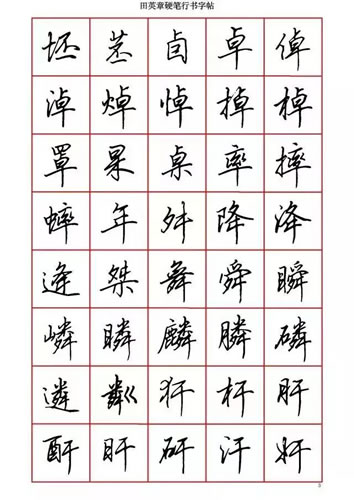 田英章硬笔行书字帖
坯 卓 倬
淖 焯 悼 掉 棹
罩 果 桌 率 摔
蟀 年 舛 降 泽
逢 桀 舞 舜 瞬
嶙 瞵 麟 膦 磷
遴 粼 犴 杆 肝
酐 盱 矸 汗 奸